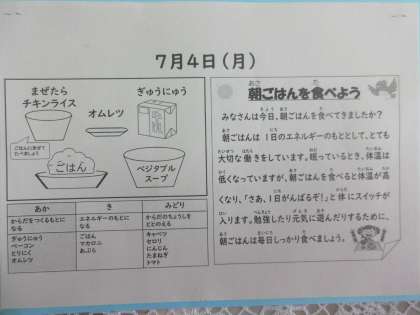 7月4日(月)
まぜたら
チキンライス
ぎゅうにゅう
オムレツ
ごはんにまぜて
たべましょう
ごはん
ベジタブル
スープ
あか
き
みどり
からだをつくるもとに
なる
エネルギーのもとに
なる
からだのちょうしを
ととのえる
ぎゅうにゅう
ベーコン
とりにく
オムレツ
ごはん
マカロニ
あぶら
キャベツ
セロリ
にんじん
たまねぎ
トマト
朝ごはんを食べよう
みなさんは今日、朝ごはんを食べてきましたか?
朝ごはんは 1日のエネルギーのもととして、とても
大切な働きをしています。眠っているとき、体温は
低くなっていますが、朝ごはんを食べると体温が高
くなり、「さあ、1日がんばるぞ!」と体にスイッチが
入ります。勉強したり元気に遊んだりするために、
朝ごはんは毎日しっかり食べましょう。